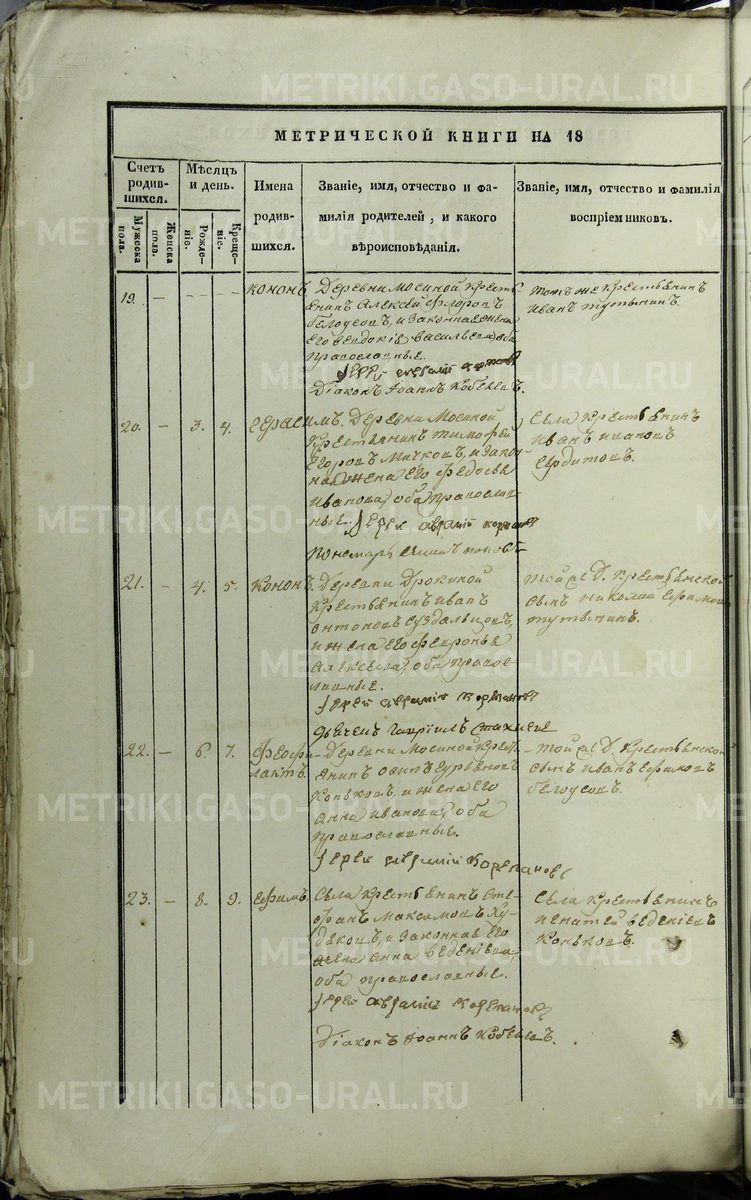 МЕТРИЧЕСКОЙ КНИГИ НА 18
Счетъ родив-шихся.
Мужеска пола.
Женска пола.
Мѣсяцъ и день.
Рожде-ніе.
Креще-ніе.
Имена родив-шихся.
Званіе, имя, отчество и фа-
милія родителей, и какого
вѣроисповѣданія.
Званіе, имя, отчество и фамилія
воспріемниковъ.
19. — — — Кононъ
Деревни Мосиной кресть-
янинъ Алексѣй Флоровъ
Белоусовъ, и законная жена
его Евдокіе Васильева, оба
православные.
Іерей Аврамій
Діаконъ Іоаннъ
тотъ же крестьянинъ
Иванъ Тутынинъ.
20. — 3. 4. Герасимъ.
Деревни Мосиной
крестьянинъ Тимофей
Егоровъ Мичковъ, и закон-
ная жена его Федосья
Иванова, оба православ-
ные. Іерей Аврамій
Пономарь
Села крестьянинъ
Иванъ Ивановъ
Сердитовъ.
21. — 4. 5. Кононъ.
Деревни Дрокиной
крестьянинъ Иванъ
Антоновъ Суздальцовъ,
и жена его Февронья
Алексѣева, оба правос-
лавные.
Іерей Аврамій Корепановъ
Дьячекъ Гавріилъ
той же д. крестьянской
сынъ Николай Ефимовъ
Тутынинъ.
22. — 6. 7. Феофи-
лактъ.
Деревни Мосиной крест-
янинъ Осипъ Гурьяновъ
Коньковъ, и жена его
Анна Иванова, оба
православные.
Іерей Аврамій Корепановъ
той же д. крестьянской
сынъ Иванъ Ефимовъ
Белоусовъ.
23. — 8. 9. Ефимъ.
Села крестьянинъ Сте-
фанъ Максимовъ Ху-
дяковъ, и законная его
жена Анна Веденіева,
оба православные.
Іерей Аврамій Корепановъ
Діаконъ Іоаннъ
Села крестьянинъ
Игнатей Веденіевъ
Коньковъ.
METRIKI.GASO-URAL.RU